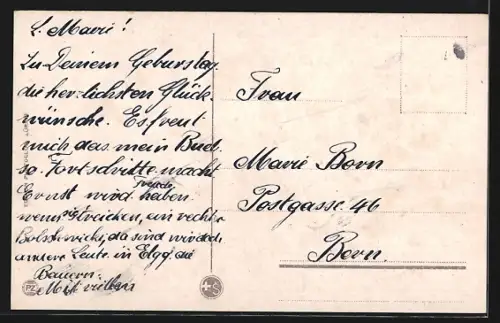 L. Marie!
Zu Deinem Geburstag
die herzlichsten Glück-
wünsche. Es freut
mich das mein Bueb
so Fortschritte macht
Ernst wird Freude haben
wenn
ein rechter
Bolschewick, da sind wir doch
andere Leute in Elgg, die
Bauern.
Mit vielen
Frau
Marie Born
Postgasse 46
Bern.
PZ